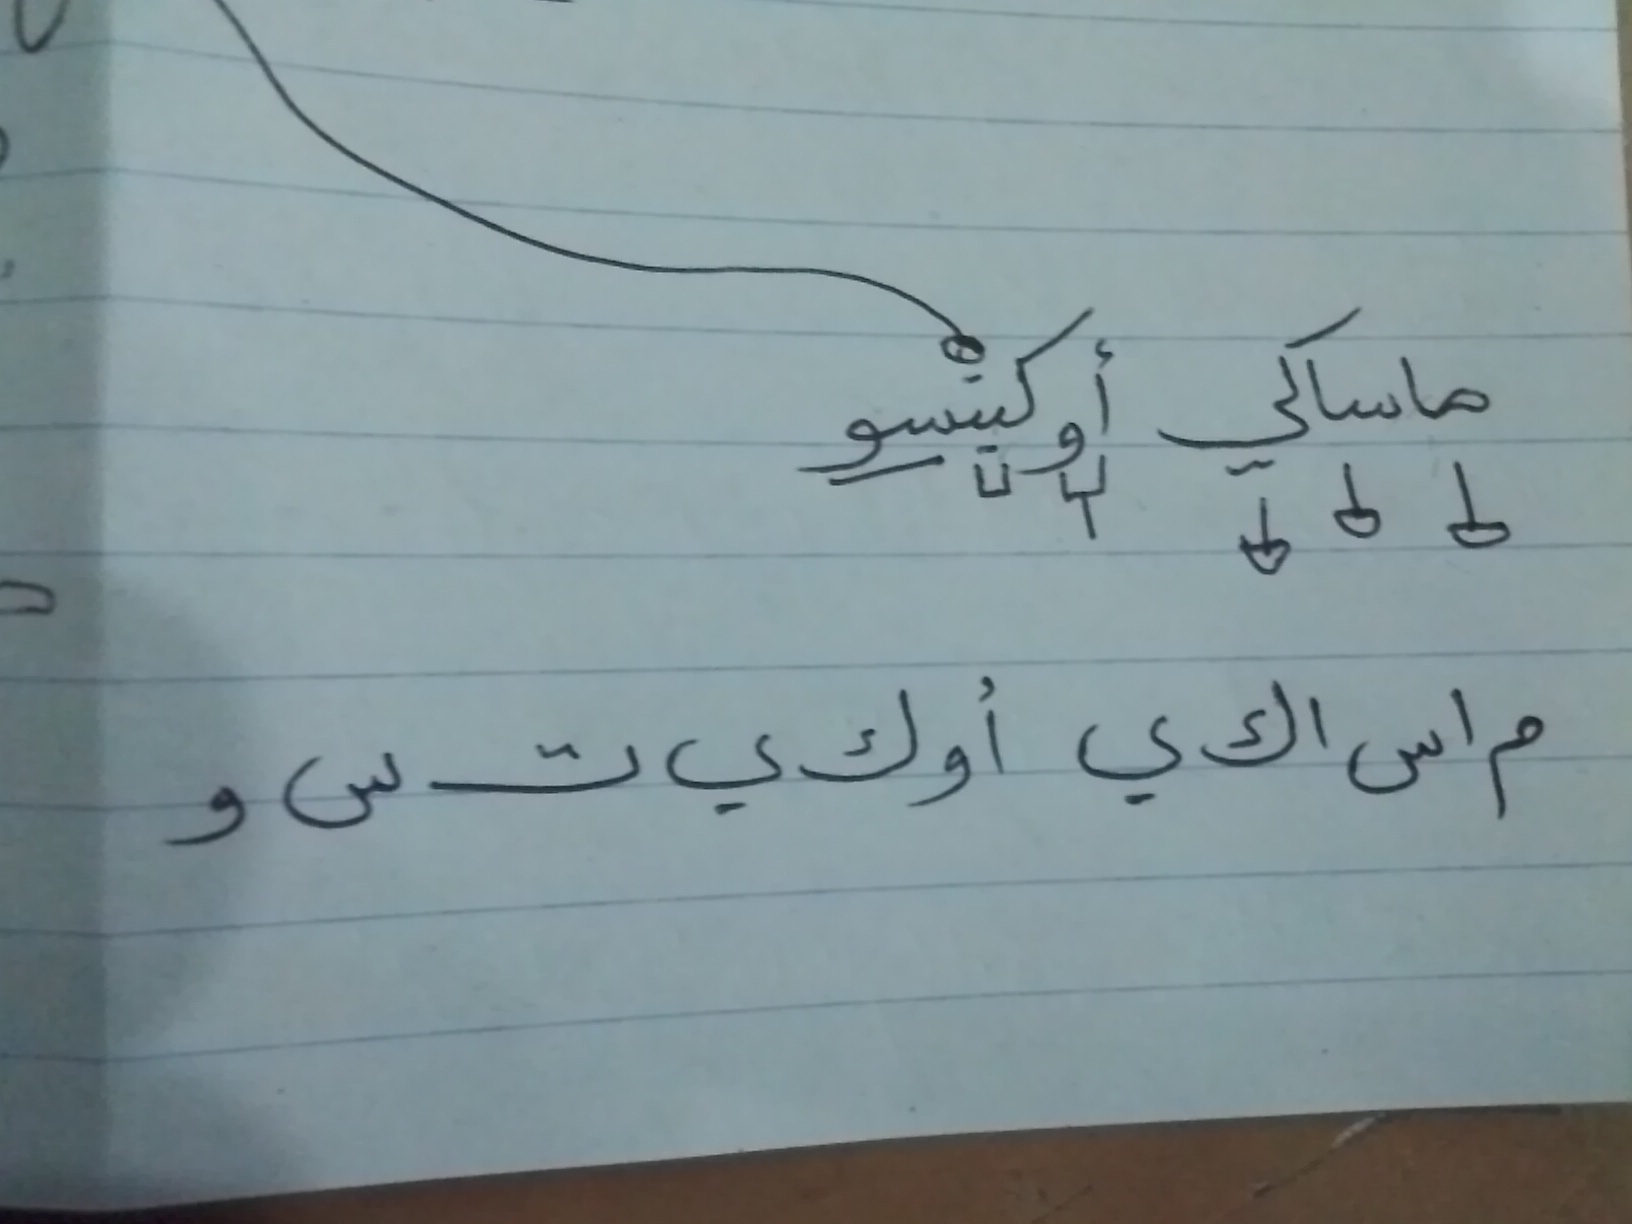 ماساكي أوكيتسو
م ا س ا ك ي أ و ك ي ت س و